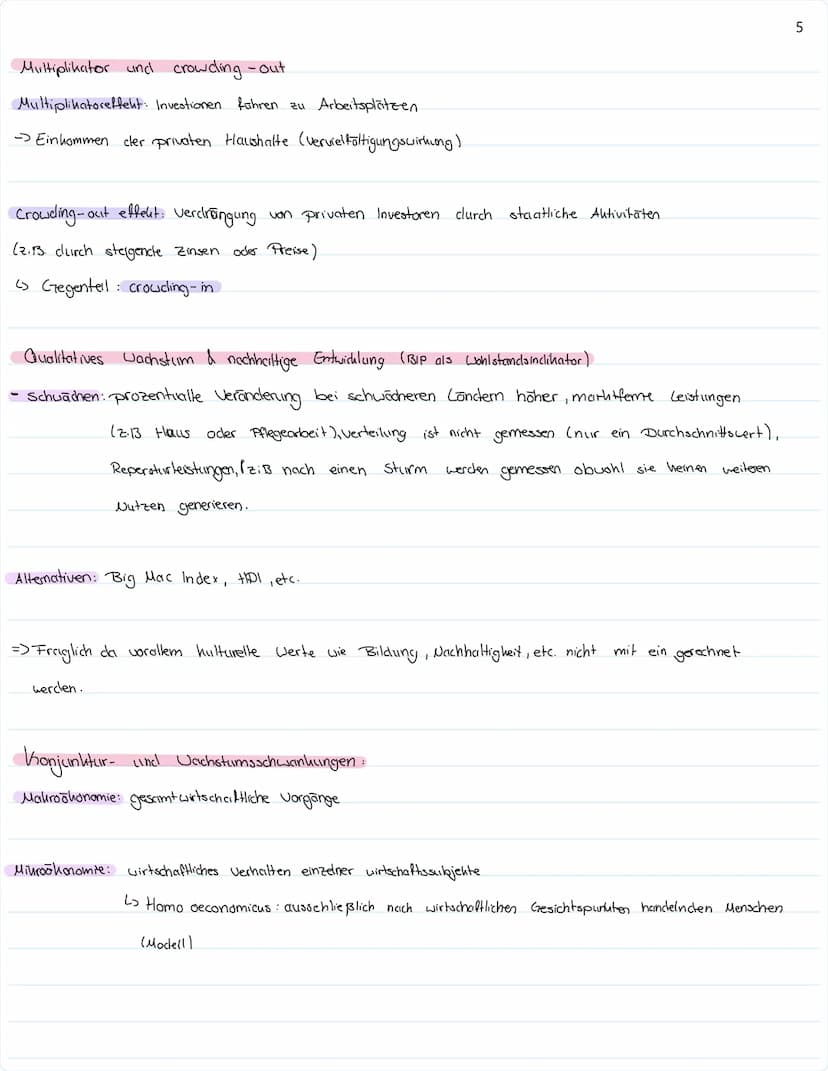 5
Multiplikator und crowding-out
Multiplikatoreffekt: Investionen fahren zu Arbeitsplätzen
-> Einkommen der privaten Haushalte (Vervielfältigungswirkung)
Crowding-out effekt: Verdrängung von privaten Investoren durch staatliche Aktivitäten
(z.B durch steigende Zinsen oder Preise)
↳ Gegenteil: crowding-in
Qualitatives Wachstum & nachhaltige Entwicklung (BIP als Wohlstandsindikator)
- Schwächen: prozentualle Veränderung bei schwächeren Ländern höher, marktferne Leistungen
(z.B Haus oder Pflegearbeit), Verteilung ist nicht gemessen (nur ein Durchschnittswert),
Reperaturleistungen, (z.B nach einen Sturm werden gemessen obwohl sie keinen weiteren
Nutzen generieren.
Alternativen: Big Mac Index, HDI, etc.
=> Fraglich da vorallem kulturelle Werte wie Bildung, Nachhaltigkeit, etc. nicht mit ein gerechnet
werden.
Konjunktur- und Wachstumsschwankungen:
Makroökonomie: gesamtwirtschaftliche Vorgänge
Mikroökonomie: wirtschaftliches Verhalten einzelner wirtschaftssubjekte
↳ Homo oeconomicus: ausschließlich nach wirtschaftlichen Gesichtspunkten handelnden Menschen
(Modell)